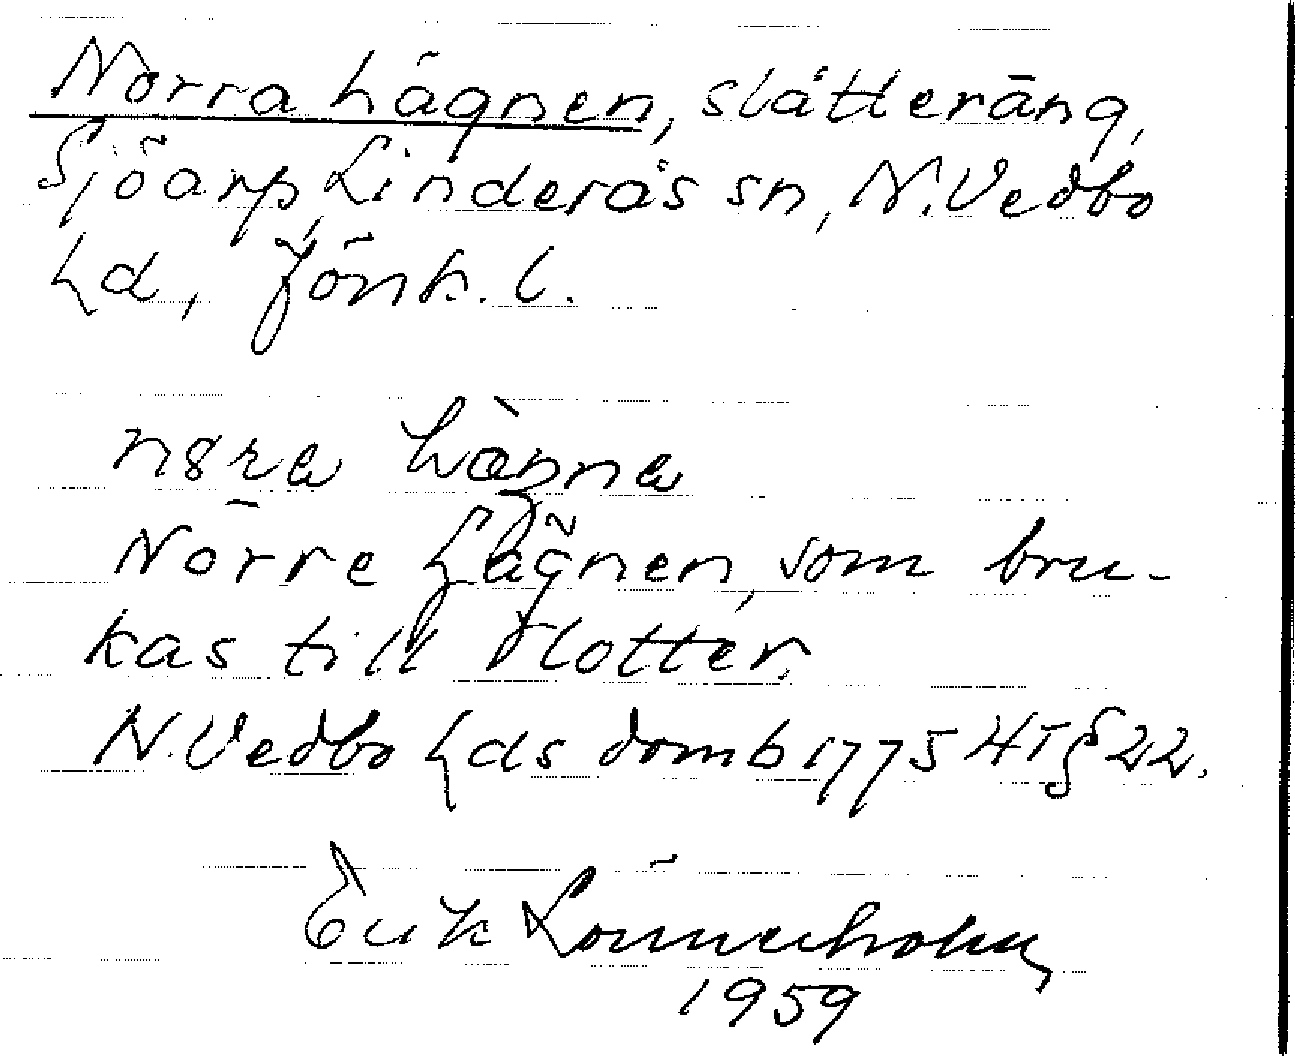 Norra hägnen, slåtteräng,
Sjöarp, Linderås sn, N. Vedbo
hd, Jönk. l.
Norre hägnen, som bru-
kas till slotter.
N. Vedbo hds domb 1775 HT § 22.
Erik Lönnerholm
1959